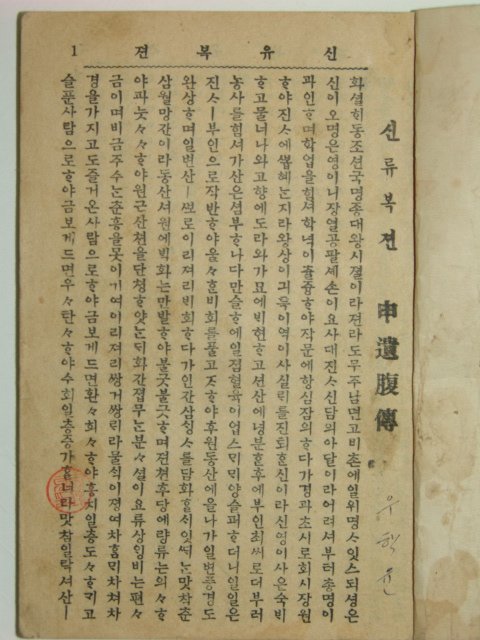 신류복젼 申遺腹傳
화셜 히동조션국 명종대왕시졀이라 젼라도 무주 남면 고비촌에 일위 명ᄉ 잇스되 셩은
신이오 명은 영이니 장열공 팔셰손이요 사대 진ᄉ 신담의 아달이라 어려셔부터 총명이
과인ᄒᆞ며 학업을 힘셔 학녁이 츌즁ᄒᆞ야
ᄒᆞ야 진ᄉ에 ᄲᅢᆸ혜는지라 왕상이
ᄒᆞ고 물너나와 고향에 도라와 가묘에 빅현ᄒᆞ고 션산에 녕분ᄒᆞᆫ 후에 부인 최씨로 더부러
농사를 힘셔 가산은 셤부ᄒᆞ나 다만 슬ᄒᆞ에 일졈혈륙이 업스ᄆᆡ ᄆᆡ양 슬퍼ᄒᆞ더니 일일은
진ᄉㅣ 부인으로 작반ᄒᆞ야 울ᄉᄒᆞᆫ 비회를 풀고ᄌᆞᄒᆞ야 후원 동산에 올나가 일변 풍경도
완상ᄒᆞ며 일변 산ㅣ로 이리져리 비회ᄒᆞ다가 인간 삼심ᄉ를 담화ᄒᆞᆯᄉᆡ 잇ᄯᆡ는 맛참 춘
삼월 망간이라 동산 셔원에 빅화는 만발ᄒᆞ야 불긋불긋ᄒᆞ며 젼쳔 후당에 양류는 의ᄉᄒᆞ
야 파릇ᄉᄉᄒᆞ야 원근산쳔을 단쳥ᄒᆞ얏는ᄃᆡ 화간졉무는 분ᄉ셜이요 류상잉비는 편ᄉ
금이며 비금주수는 춘흥을 못이기여 이리져리 쌍거쌍ᄅᆡ
경을 가지고도 즐거온 사람으로 ᄒᆞ야금 보게드면 환ᄉ희ᄉᄒᆞ야 흥치일층 도ᄉᄒᆞᆯᄉᆡ고
슬푼 사람으로 ᄒᆞ야금 보게드면 우ᄉ탄ᄉᄒᆞ야 수회일층 증가ᄒᆞᆯ너라 맛참 일락셔산ㅣ
신유복젼
1